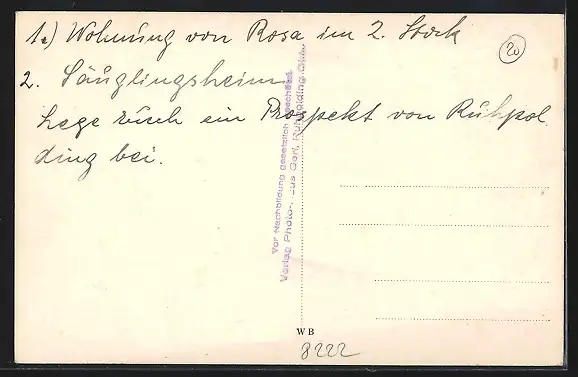 1.) Wohnung von Rosa im 2. Stock
20
2. Säuglingsheim
Lege Euch ein Prospekt von Ruhpol
ding bei.
Vor Nachbildung gesetzlich geschützt
Verlag Photo-Haus Gerl, Ruhpolding
WB
8222